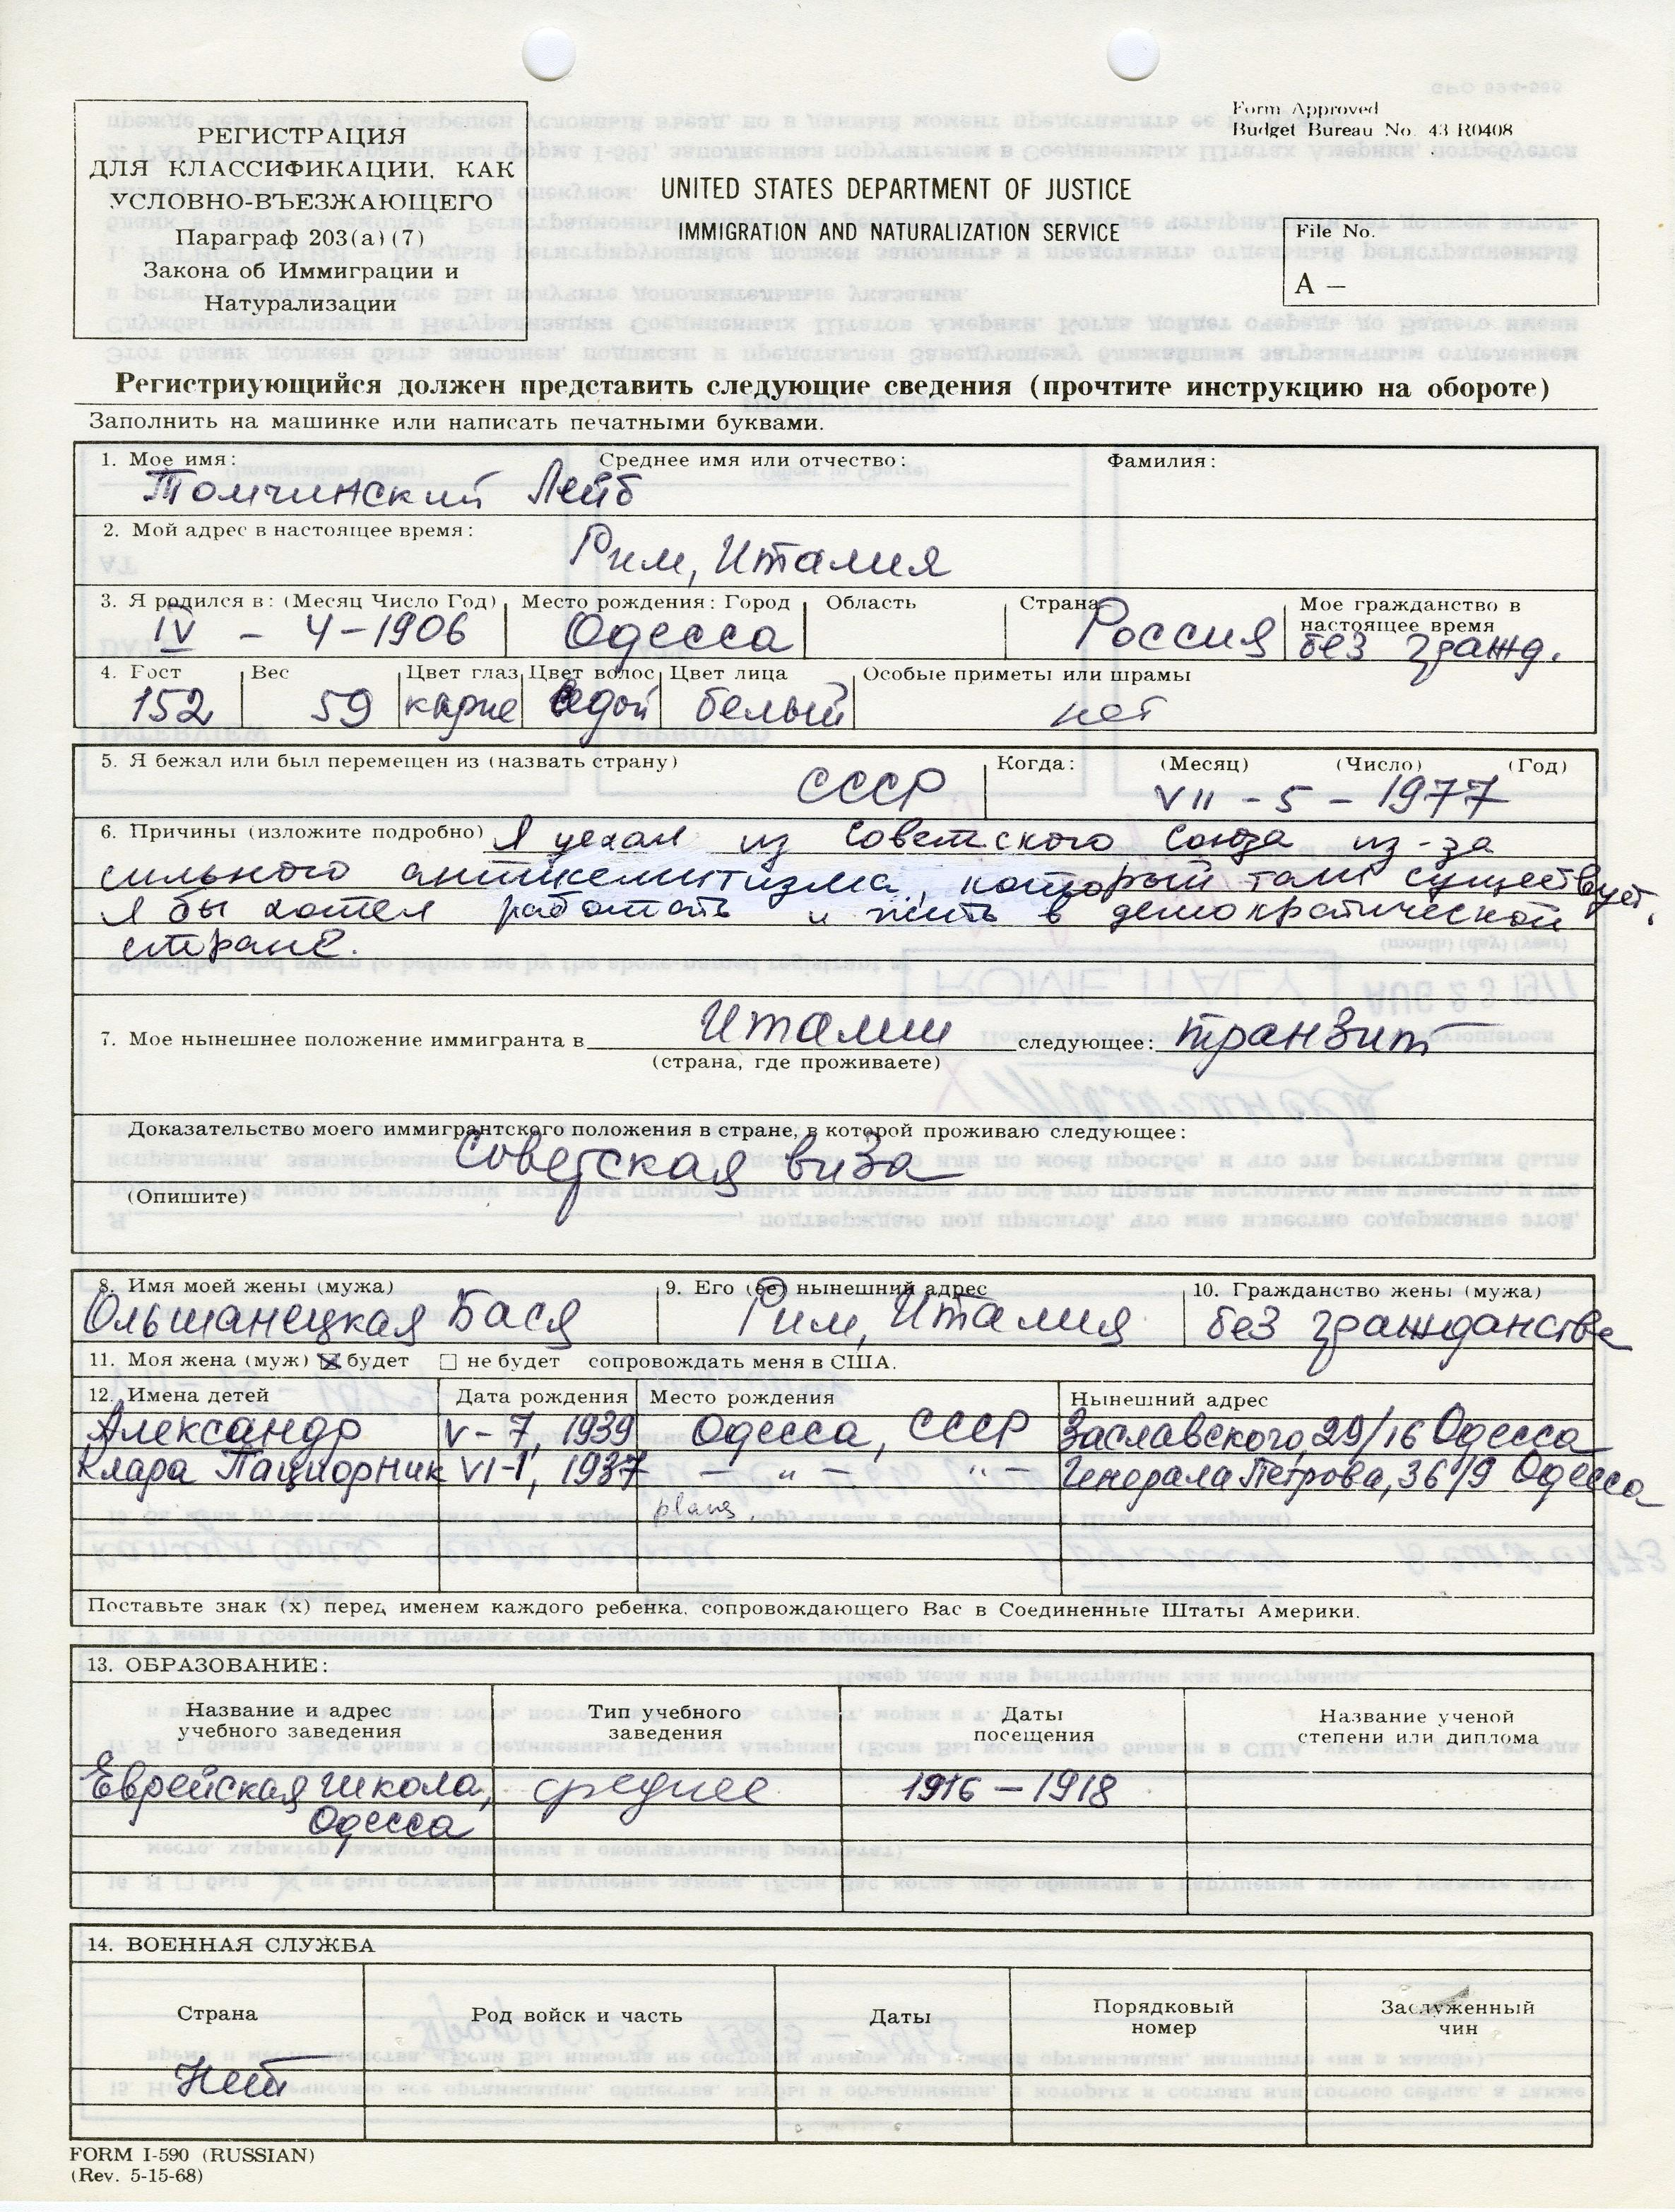 Form Approved
Budget Bureau No. 43 R0408
РЕГИСТРАЦИЯ
ДЛЯ КЛАССИФИКАЦИИ, КАК
УСЛОВНО-ВЪЕЗЖАЮЩЕГО
Параграф 203(a)(7)
Закона об Иммиграции и
Натурализации
UNITED STATES DEPARTMENT OF JUSTICE
IMMIGRATION AND NATURALIZATION SERVICE
File No.
A —
Регистриующийся должен представить следующие сведения (прочтите инструкцию на обороте)
Заполнить на машинке или написать печатными буквами.
1. Мое имя: Среднее имя или отчество: Фамилия:
Томчинский Лейб
2. Мой адрес в настоящее время:
Рим, Италия
3. Я родился в: (Месяц Число Год) Место рождения: Город Область Страна Мое гражданство в настоящее время
IV - 4-1906 Одесса Россия без гражд.
4. Рост Вес Цвет глаз Цвет волос Цвет лица Особые приметы или шрамы
152 59 карие седой белый нет
5. Я бежал или был перемещен из (назвать страну) СССР Когда: (Месяц) (Число) (Год)
VII - 5 - 1977
6. Причины (изложите подробно) Я уехал из Советского Союза из-за
сильного антисемитизма, который там существует.
Я бы хотел работать и жить в демократической
стране.
7. Мое нынешнее положение иммигранта в Италии следующее: транзит
(страна, где проживаете)
Доказательство моего иммигрантского положения в стране, в которой проживаю следующее:
Советская виза
(Опишите)
8. Имя моей жены (мужа) 9. Его (ее) нынешний адрес 10. Гражданство жены (мужа)
Ольшанецкая Бася Рим, Италия без гражданства
11. Моя жена (муж) ☒ будет ☐ не будет сопровождать меня в США.
12. Имена детей Дата рождения Место рождения Нынешний адрес
Александр V-7, 1939 Одесса, СССР Заславского, 29/16 Одесса
Клара Пациорник VI-1, 1937 — " — " — Генерала Петрова, 36/9 Одесса
Поставьте знак (х) перед именем каждого ребенка, сопровождающего Вас в Соединенные Штаты Америки.
13. ОБРАЗОВАНИЕ:
Название и адрес учебного заведения Тип учебного заведения Даты посещения Название ученой степени или диплома
Еврейская школа, среднее 1916 - 1918
Одесса
14. ВОЕННАЯ СЛУЖБА
Страна Род войск и часть Даты Порядковый номер Заслуженный чин
Нет
FORM I-590 (RUSSIAN)
(Rev. 5-15-68)